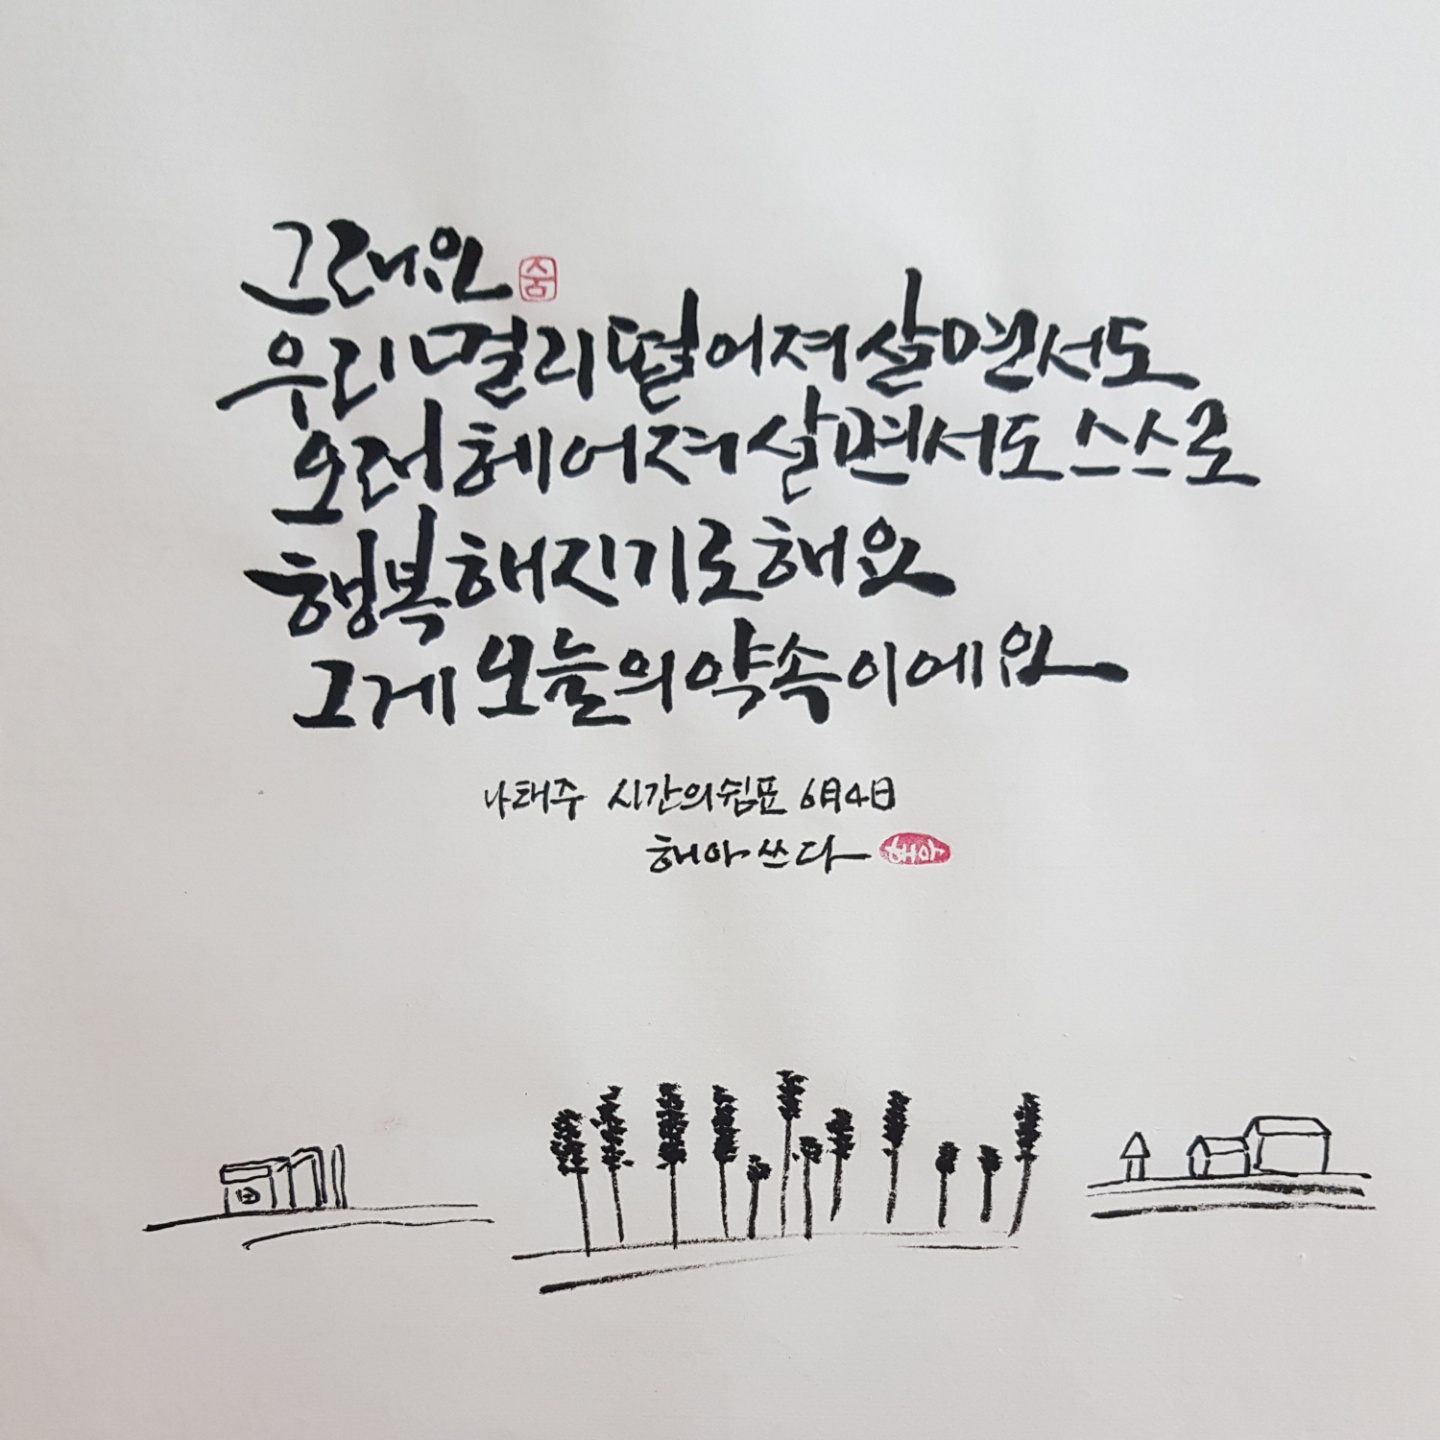 그래요 숨
우리 멀리 떨어져 살면서도
오래 헤어져 살면서도 스스로
행복해지기로 해요
그게 오늘의 약속이에요
나태주 시간의 쉼표 6月4日
해아 쓰다 해아